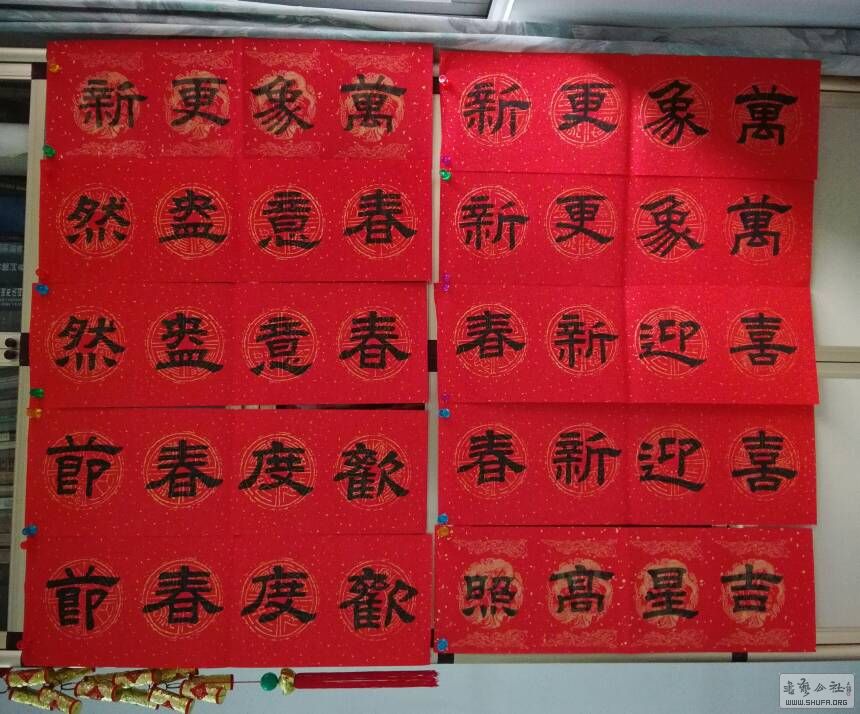 萬象更新
萬象更新
喜迎新春
喜迎新春
吉星高照
萬象更新
春意盎然
春意盎然
歡度春節
歡度春節
WWW.SHUFA.ORG